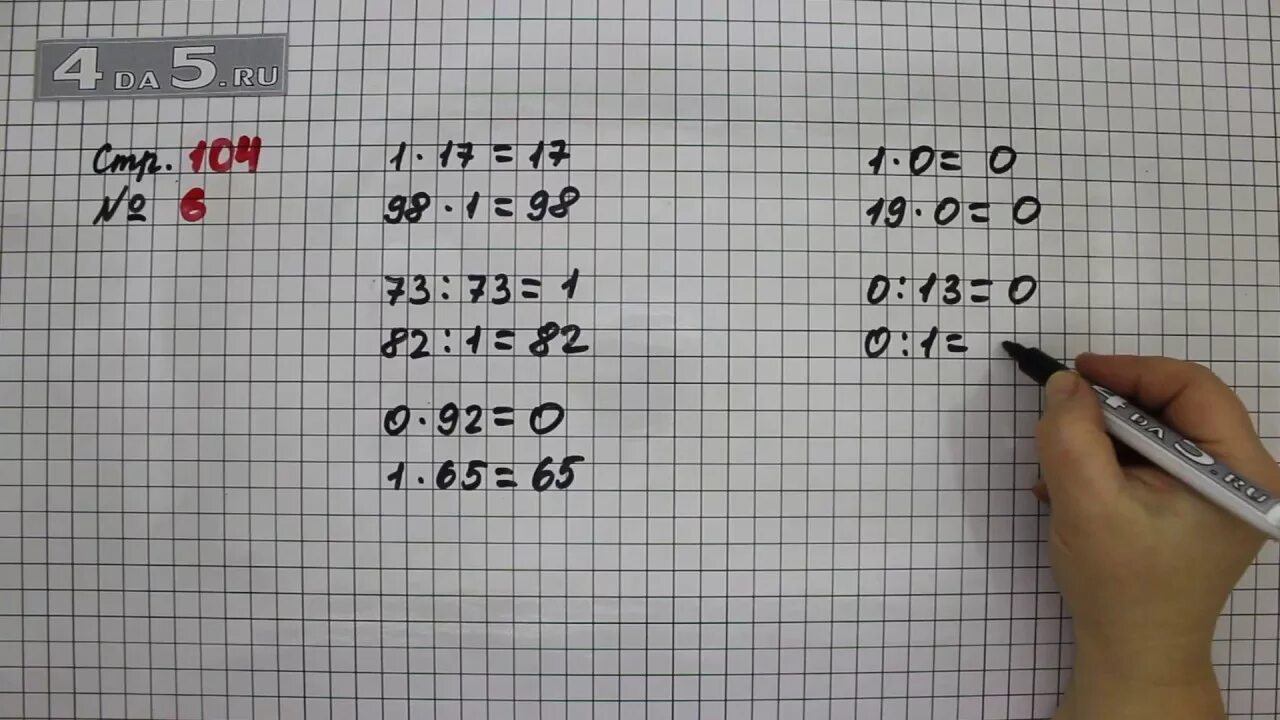 4DA5.RU
Стр. 104
№ 6
1 · 17 = 17
98 · 1 = 98
73 : 73 = 1
82 : 1 = 82
0 · 92 = 0
1 · 65 = 65
1 · 0 = 0
19 · 0 = 0
0 : 13 = 0
0 : 1 =
4DA5.RU